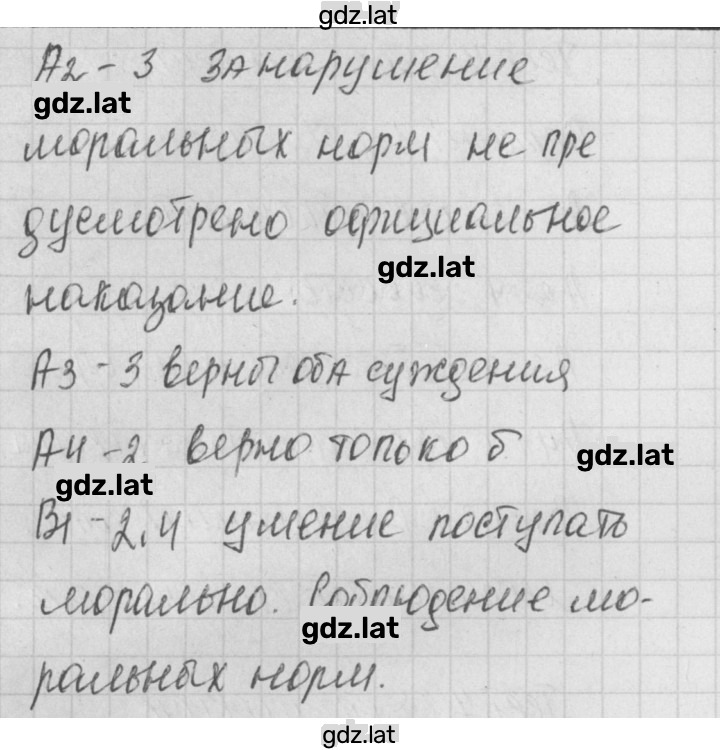 gdz.lat
А2 - 3 за нарушение
gdz.lat
моральных норм не пре
дусмотрено официальное
gdz.lat
наказание.
А3 - 3 верны оба суждения
А4 - 2 верно только б
gdz.lat
gdz.lat
В1 - 2,4 умение поступать
морально. Соблюдение мо-
gdz.lat
ральных норм.
gdz.lat